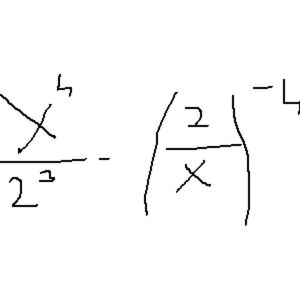 x^4/2^3 - (2/x)^-4